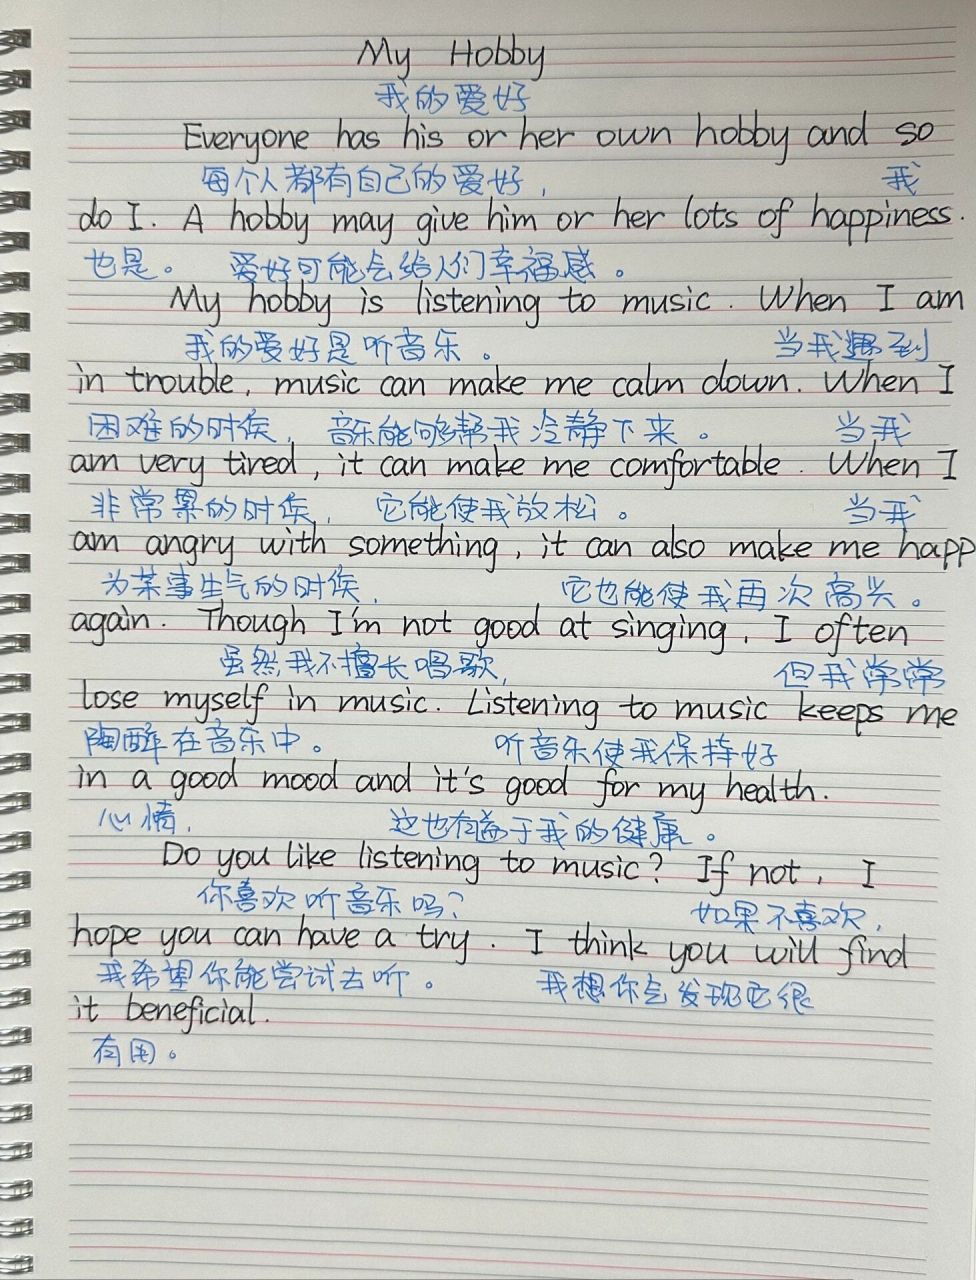 My Hobby
我的爱好
Everyone has his or her own hobby and so
每个人都有自己的爱好, 我
do I. A hobby may give him or her lots of happiness.
也是。 爱好可能会给人们幸福感。
My hobby is listening to music. When I am
我的爱好是听音乐。 当我遇到
in trouble, music can make me calm down. When I
困难的时候, 音乐能够帮我冷静下来。 当我
am very tired, it can make me comfortable. When I
非常累的时候, 它能使我放松。 当我
am angry with something, it can also make me happ
为某事生气的时候, 它也能使我再次高兴。
again. Though I'm not good at singing, I often
虽然我不擅长唱歌, 但我常常
lose myself in music. Listening to music keeps me
陶醉在音乐中。 听音乐使我保持好
in a good mood and it's good for my health.
心情, 这也有益于我的健康。
Do you like listening to music? If not, I
你喜欢听音乐吗? 如果不喜欢,
hope you can have a try. I think you will find
我希望你能尝试去听。 我想你会发现它很
it beneficial.
有用。